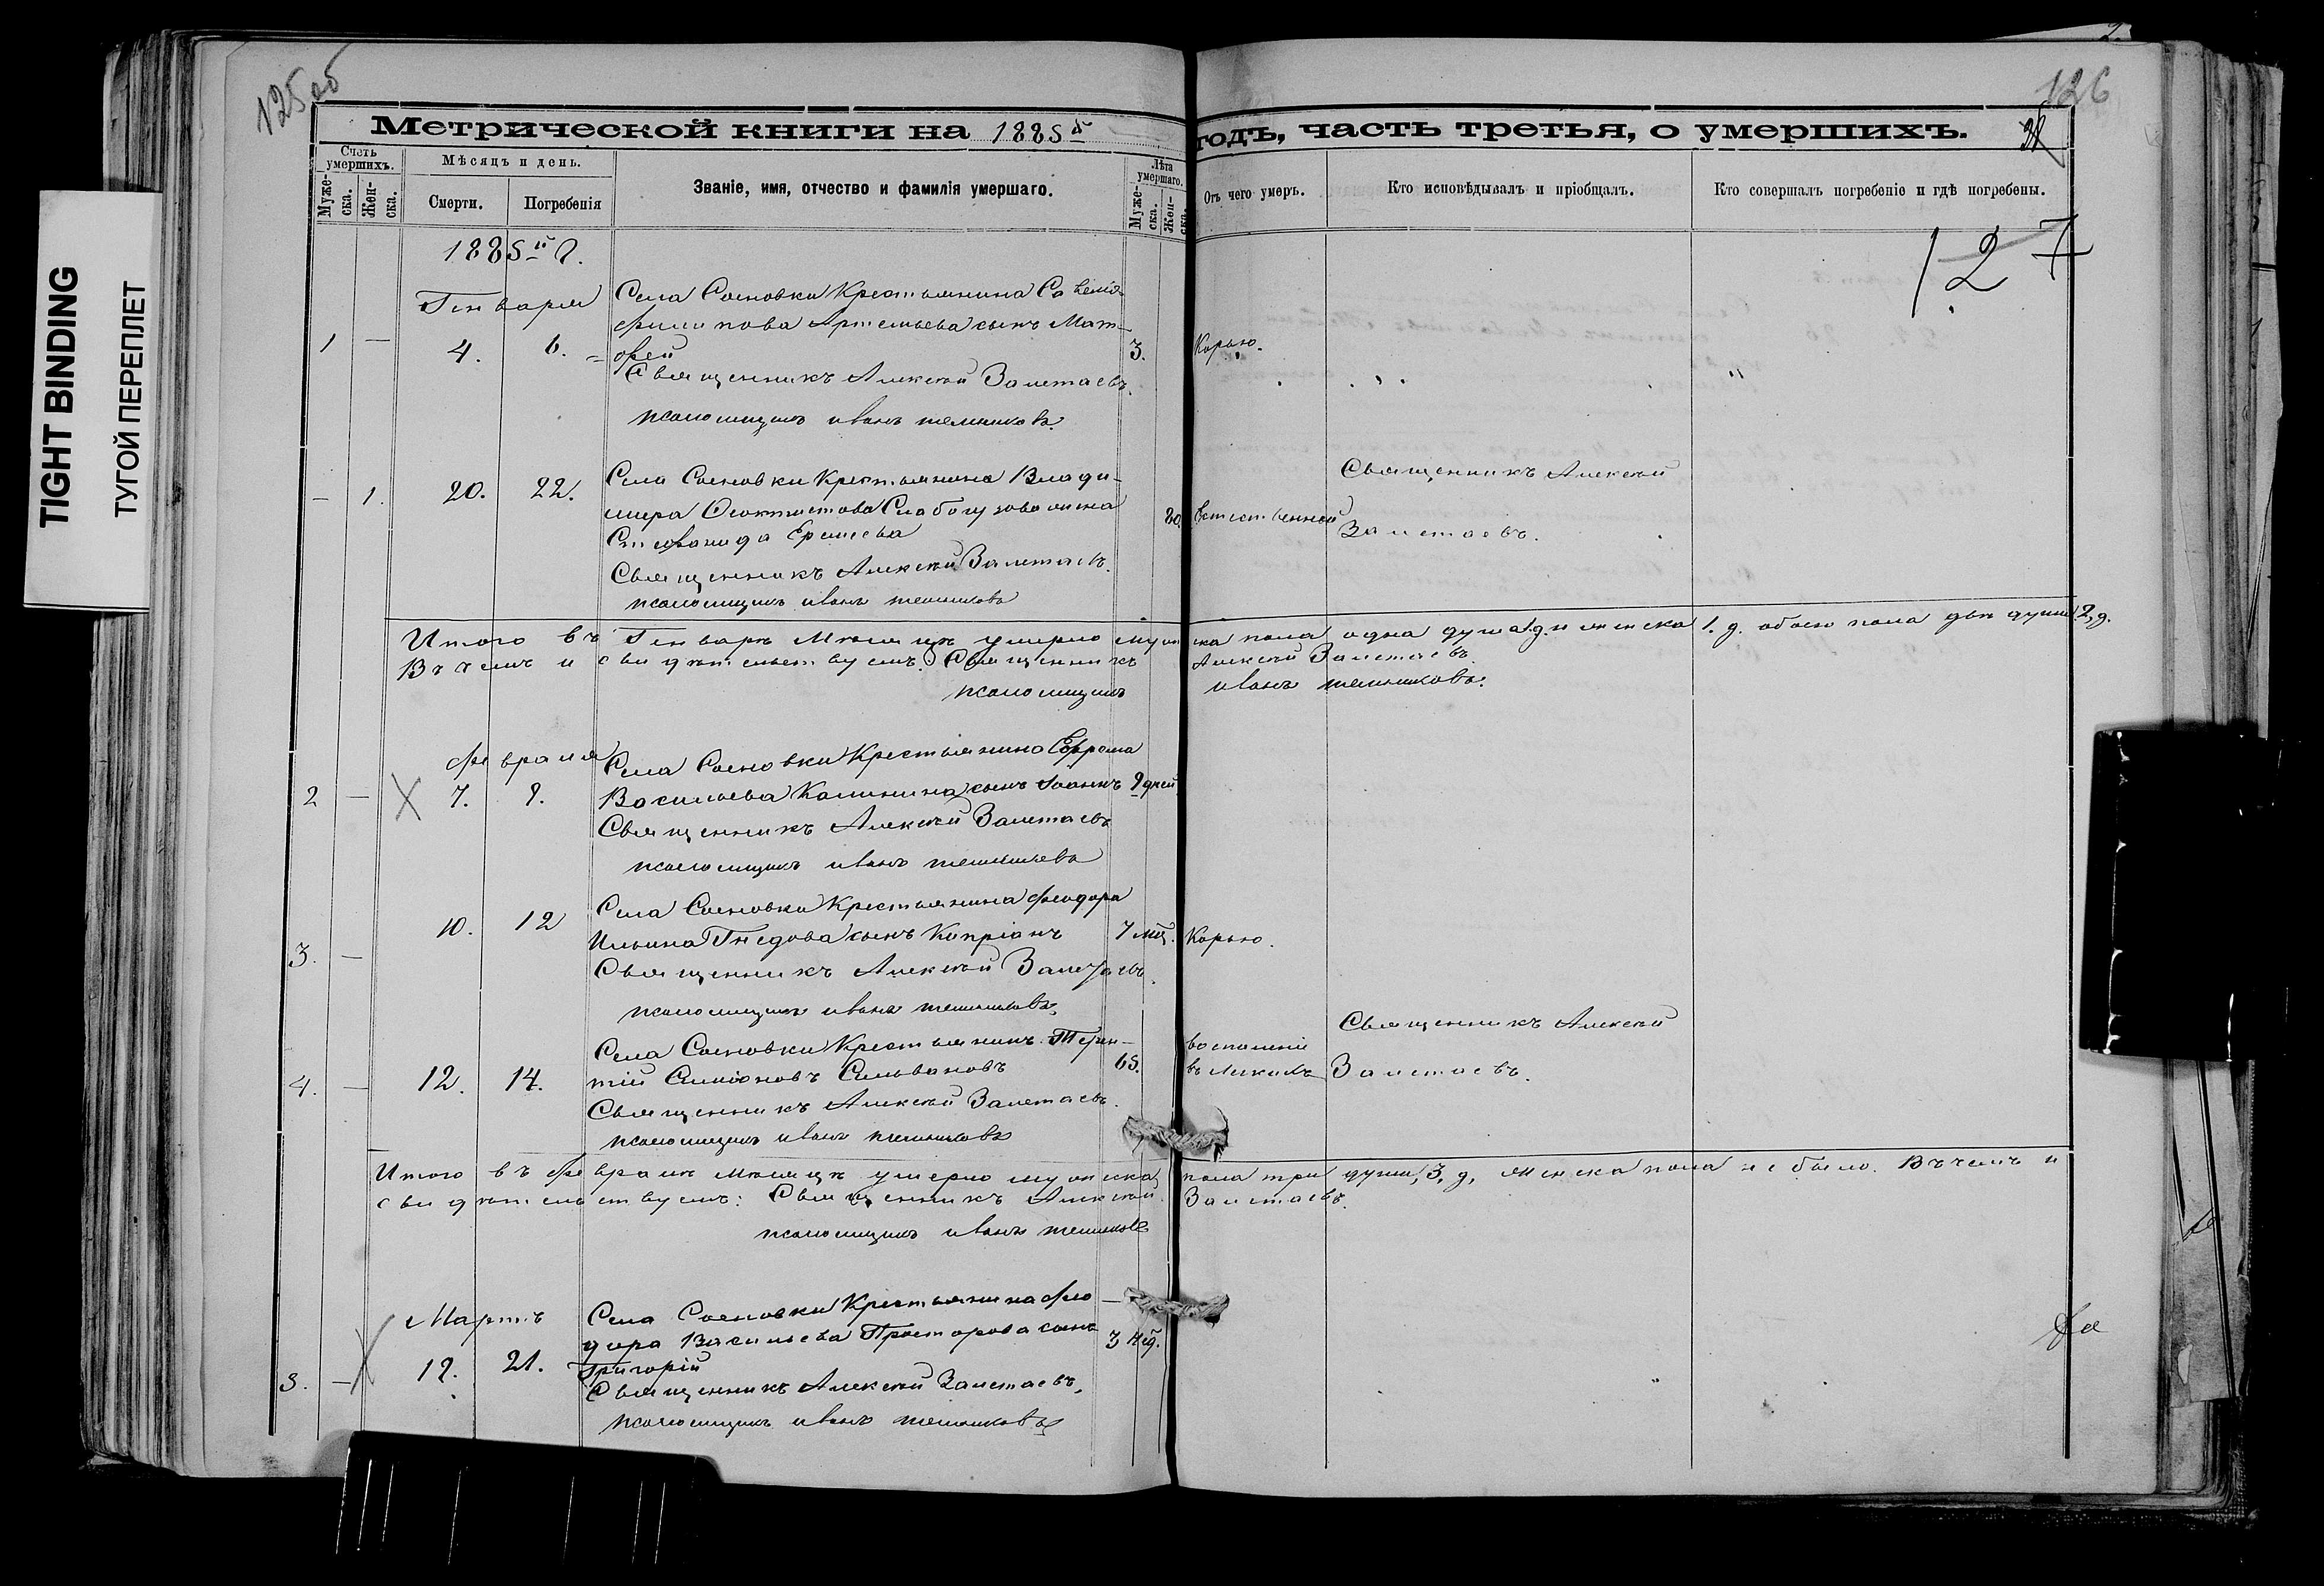 125 об
126
Метрической книги на 1885й годъ, часть третья, о умершихъ.
Счетъ умершихъ.
Муже-
ска.
Жен-
ска.
Мѣсяцъ и день.
Смерти.
Погребенія
Званіе, имя, отчество и фамилія умершаго.
Лѣта умершаго.
Муже-
ска.
Жен-
ска.
Отъ чего умеръ.
Кто исповѣдывалъ и пріобщалъ.
Кто совершалъ погребеніе и гдѣ погребены.
127
1885й г.
Генваря
Села Сосновки Крестьянина Савелія
Филипова Артемьева сынъ Мат-
1 — 4. 6. = фей 3. Корью.
Священникъ Алексѣй Залетаевъ.
псаломщикъ иванъ
Села Сосновки Крестьянина Влади-
— 1. 20. 22. мира Феоктистова
80. Естественной
Стефанида
Священникъ Алексѣй Залетаевъ.
Священникъ Алексѣй Залетаевъ.
псаломщикъ иванъ
Итого въ Генварѣ Мѣсяцѣ умерло мужска пола одна душа 1 д. и женска 1. д. обоего пола двѣ души 2, д.
Въ чемъ и свидѣтельствуемъ. Священникъ Алексѣй Залетаевъ.
псаломщикъ иванъ
Февраля
Села Сосновки Крестьянина Ефрема
2 — 7. 9. Васильева Калинина сынъ Іоаннъ 9 дней
Священникъ Алексѣй Залетаевъ
псаломщикъ иванъ
Села Сосновки Крестьянина Феодора
3. — 10. 12 Ильина Гнедова сынъ Кипріанъ 7 мѣц. Корью.
Священникъ Алексѣй Залетаевъ.
псаломщикъ иванъ
Села Сосновки Крестьянинъ Терен-
4. — 12. 14. тій Симіоновъ Сильвановъ 65. воспаленіе
Священникъ Алексѣй Залетаевъ.
Священникъ Алексѣй Залетаевъ.
псаломщикъ иванъ
Итого въ Февралѣ мѣсяцѣ умерло мужска пола три души, 3, д, Женска пола не было. Въ чемъ и
свидѣтельствуемъ: Священникъ Алексѣй Залетаевъ.
псаломщикъ иванъ
Мартъ
Села Сосновки Крестьянина Фео-
дора Васильева Просторова сынъ 3 нед.
5. — 19. 21. Григорій
Священникъ Алексѣй Залетаевъ,
псаломщикъ иванъ
TIGHT BINDING
ТУГОЙ ПЕРЕПЛЕТ